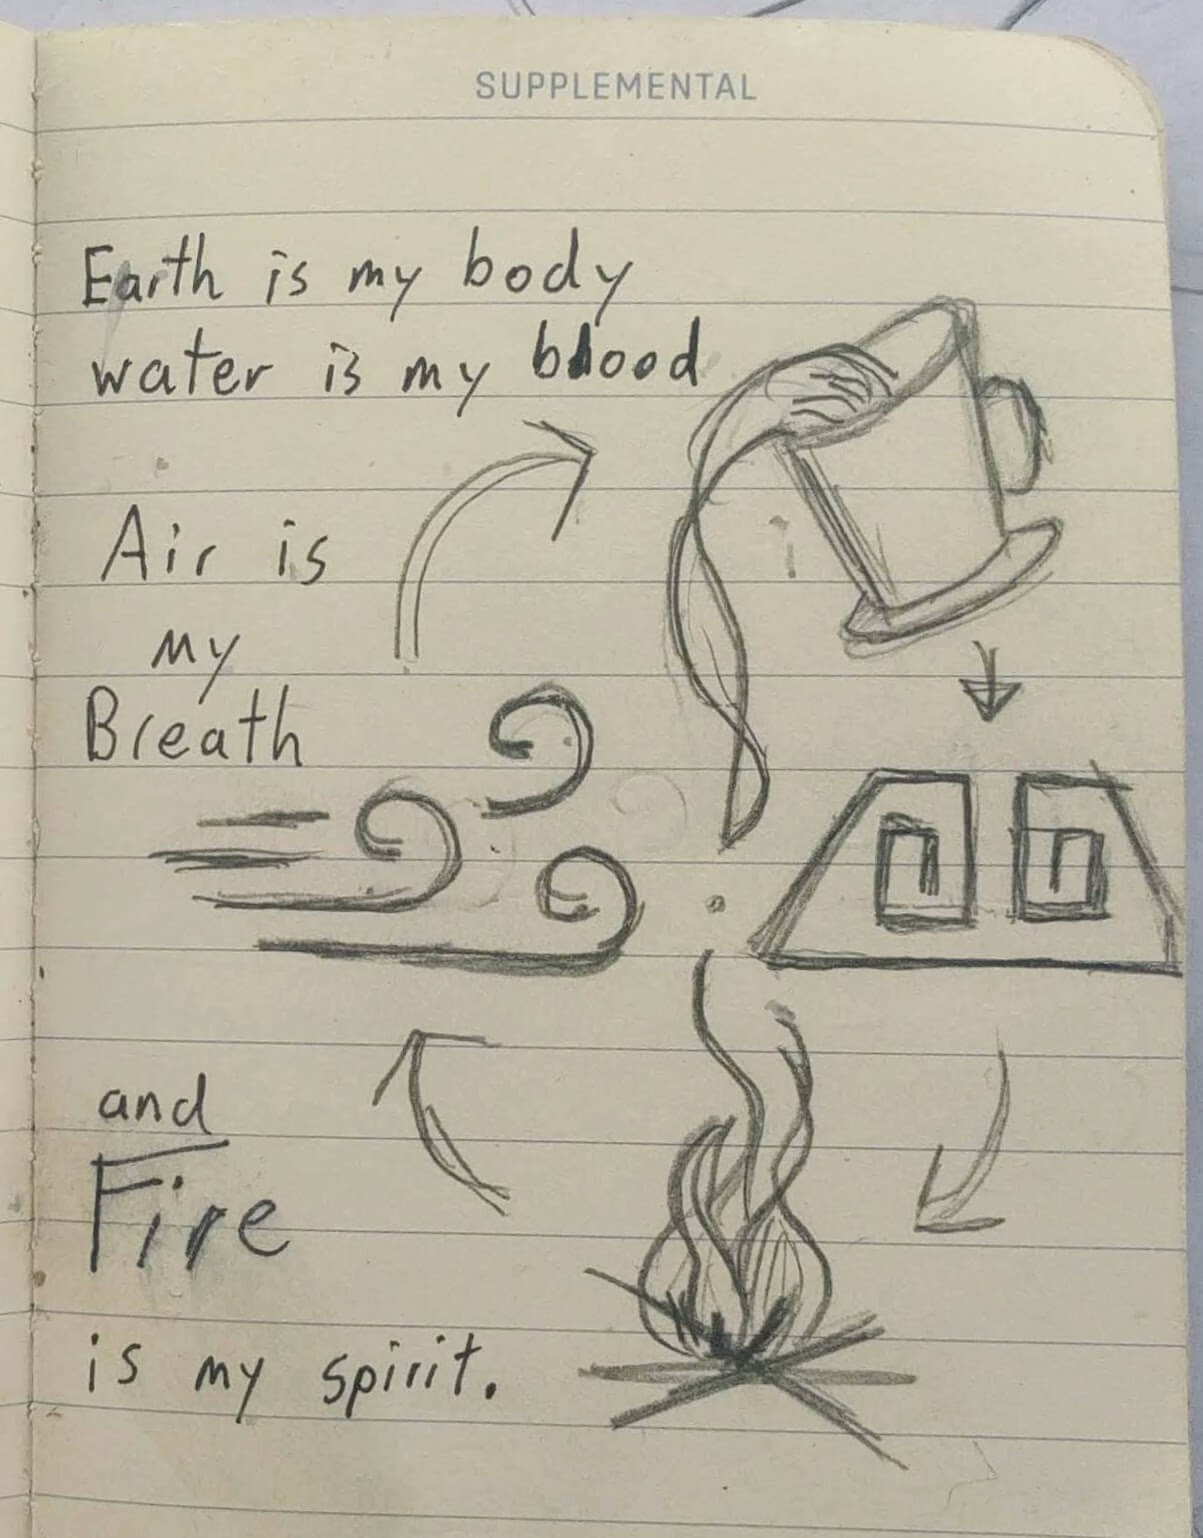 SUPPLEMENTAL
Earth is my body
water is my blood
Air is
my
Breath
and
Fire
is my spirit.